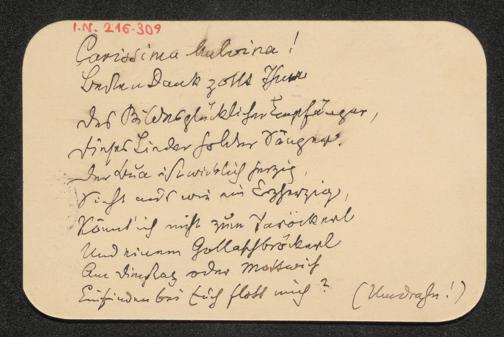 I.N. 216.309
Carissima Malvina!
Besten Dank zollt Ihnen
Des Bildes glücklicher Empfänger,
Dieses Lieder holder Sänger.
Der Bua ist wirklich herzig,
Sieht aus wie ein Erzherzig,
Könnt' ich nicht zum Taröckerl
Und einem Gollaschbröckerl
Am Dienstag oder Mittwoch
Einfinden bei Euch flott mich? (Umdrahn!)